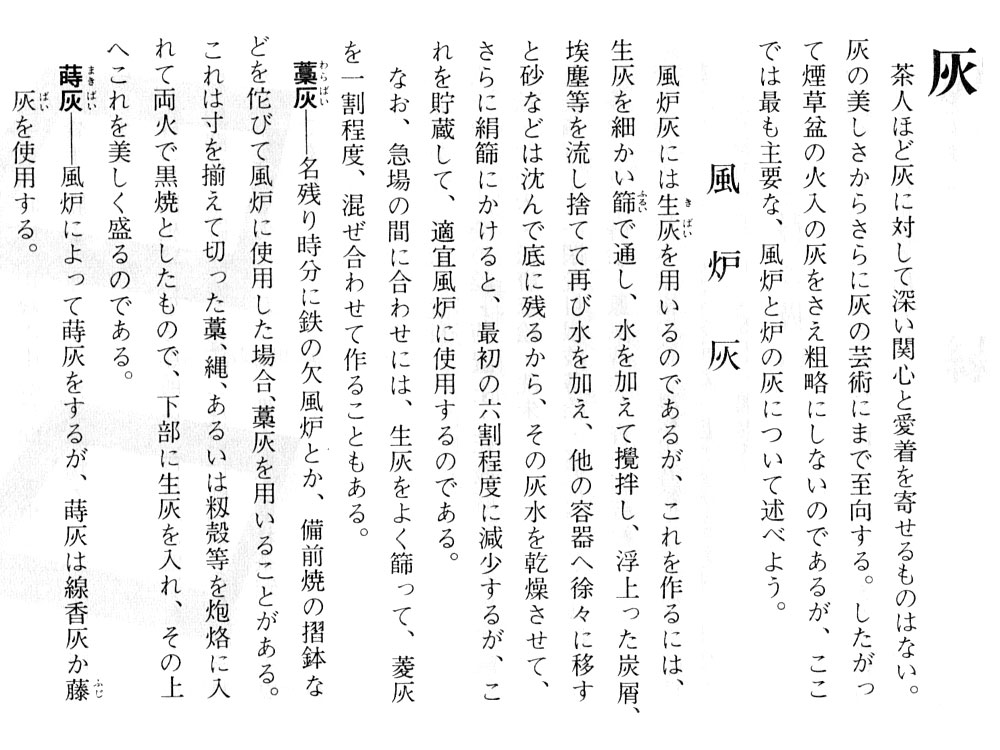 灰
茶人ほど灰に対して深い関心と愛着を寄せるものはない。
灰の美しさからさらに灰の芸術にまで至向する。したがっ
て煙草盆の火入の灰をさえ粗略にしないのであるが、ここ
では最も主要な、風炉と炉の灰について述べよう。
風炉灰
風炉灰には生灰を用いるのであるが、これを作るには、
生灰を細かい篩で通し、水を加えて攪拌し、浮上った炭屑、
埃塵等を流し捨てて再び水を加え、他の容器へ徐々に移す
と砂などは沈んで底に残るから、その灰水を乾燥させて、
さらに絹篩にかけると、最初の六割程度に減少するが、こ
れを貯蔵して、適宜風炉に使用するのである。
なお、急場の間に合わせには、生灰をよく篩って、菱灰
を一割程度、混ぜ合わせて作ることもある。
藁灰――名残り時分に鉄の欠風炉とか、備前焼の摺鉢な
どを佗びて風炉に使用した場合、藁灰を用いることがある。
これは寸を揃えて切った藁、縄、あるいは籾殻等を炮烙に入
れて両火で黒焼としたもので、下部に生灰を入れ、その上
へこれを美しく盛るのである。
蒔灰――風炉によって蒔灰をするが、蒔灰は線香灰か藤
灰を使用する。